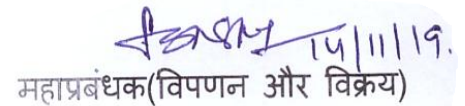 14/11/19.
महाप्रबंधक(विपणन और विक्रय)